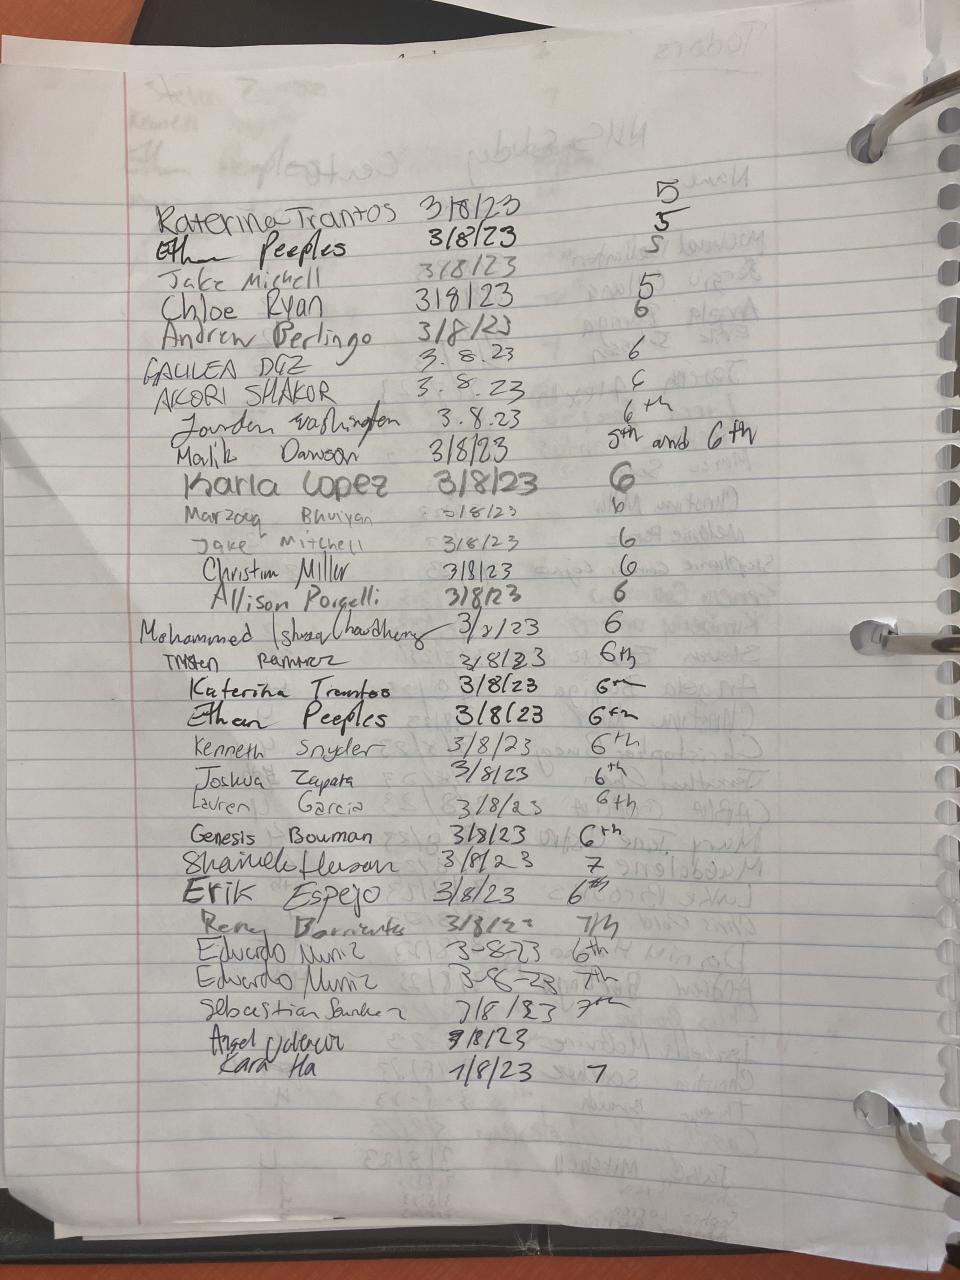 Katerina Trantos 3/8/23 5
Ethan Peeples 3/8/23 5
Jake Michell 3/8/23 5
Chloe Ryan 3/8/23 5
Andrew Berlingo 3/8/23 6
GALILEA DGZ 3.8.23 6
AKORI SHAKOR 3.8.23 6
Jourden Washington 3.8.23 6th
Malik Dawson 3/8/23 5th and 6th
Karla Lopez 3/8/23 6
Marzooq Bhuiyan 3/8/23 6
Jake Mitchell 3/8/23 6
Christian Miller 3/8/23 6
Allison Porcelli 3/8/23 6
Mohammed Chowdhury 3/8/23 6
Ramirez 3/8/23 6th
Katerina Trantos 3/8/23 6th
Ethan Peeples 3/8/23 6th
Kenneth Snyder 3/8/23 6th
Joshua Zapata 3/8/23 6th
Lauren Garcia 3/8/23 6th
Genesis Bouman 3/8/23 6th
3/8/23 7
Erik Espejo 3/8/23 6th
Barrientos 3/8/23 7th
Eduardo Muniz 3-8-23 6th
Eduardo Muniz 3-8-23 7th
Sebastian Sanchez 3/8/23 7th
Angel 3/8/23
Kara Ha 1/8/23 7